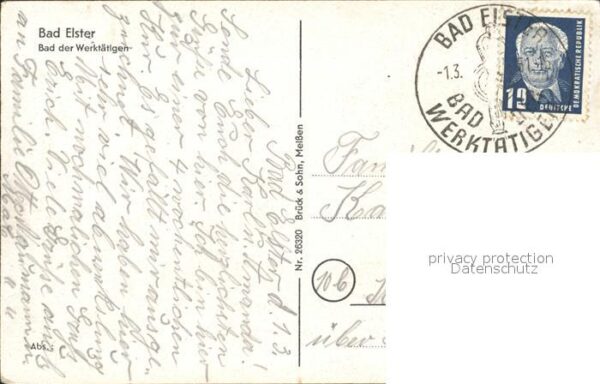 Bad Elster
Bad der Werktätigen
Bad Elster, d. 1.3.
Lieber Karl u. Amanda!
Sende Euch die herzlichsten
Grüße von hier. Ich bin hier
zur einer 4 wöchentlichen
Kur. Es gefällt mir ausge-
zeichnet. Wir haben hier
sehr viel abwechslung
Mit nochmaligen Gruß
Euch. Viele Grüße auch
an Familie
Abs.:
Nr. 26320 Brück & Sohn, Meißen
Fam
10b
über
BAD ELSTER
-1.3.
BAD
WERKTÄTIGEN
12
DEUTSCHE
DEMOKRATISCHE REPUBLIK
privacy protection
Datenschutz